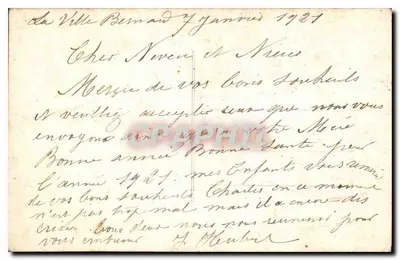 La Ville Bernard 7 janvier 1921
Cher Neveu et Nieces
Mercie de vos bons souheits
et veuillez accepter ceux que nous vous
envoyons ainsi votre Mère
Bonne année Bonne Santé pour
l'année 1921. mes Enfants vous
de vos bons souheits Charles en ce moment
n'est pas trop mal mais il a encore des
tous deux nous nous pour
vous embrasser